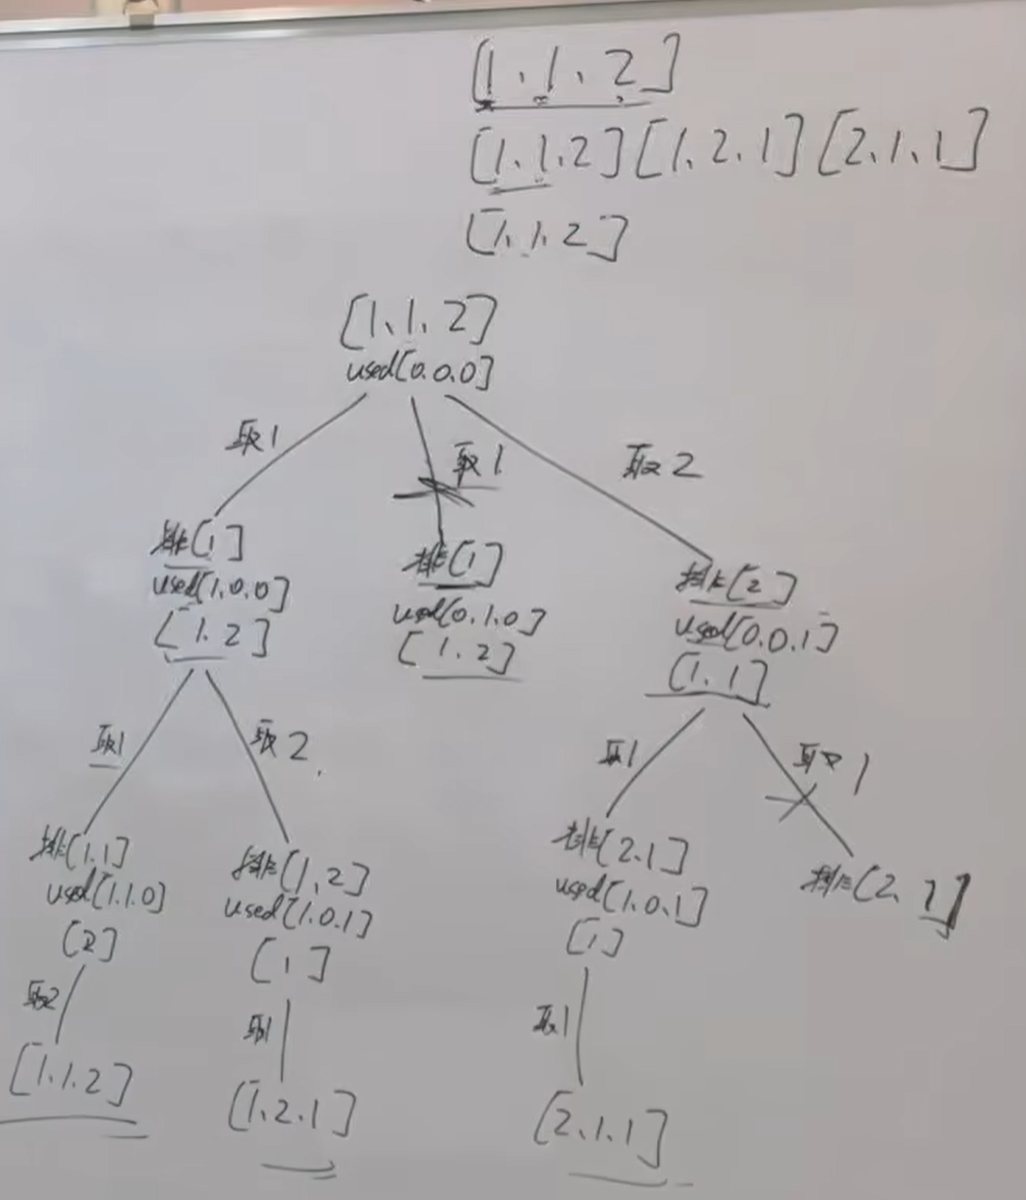 [1, 1, 2]
[1, 1, 2] [1, 2, 1] [2, 1, 1]
[1, 1, 2]
[1, 1, 2]
used[0.0.0]
取1
取1
取2
排[1]
used[1.0.0]
[1.2]
排[1]
used[0.1.0]
[1.2]
排[2]
used[0.0.1]
[1.1]
取1
取2
取1
取1
排[1.1]
used[1.1.0]
[2]
排[1,2]
used[1.0.1]
[1]
排[2.1]
used[1.0.1]
[1]
排[2.1]
取2
取1
取1
[1.1.2]
[1.2.1]
[2.1.1]